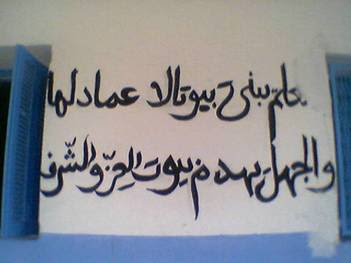 العلم يبني بيوتا لا عماد لها
والجهل يهدم بيوت العِزّ والشّرف